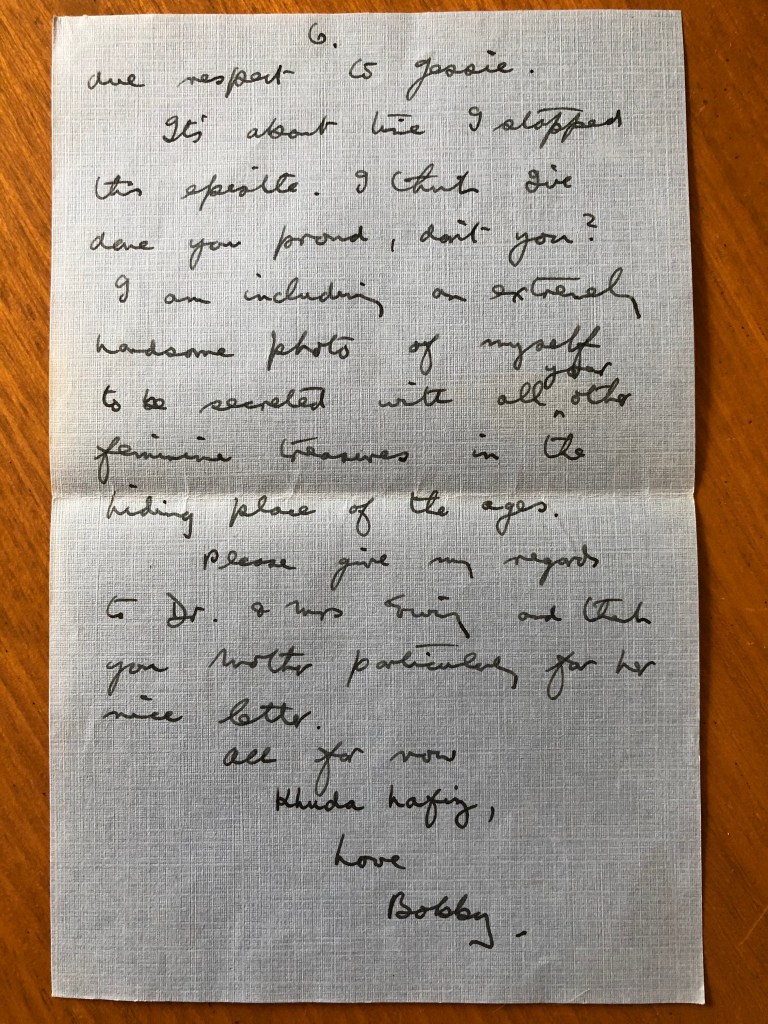 6.
due respect to Jessie.
It's about time I stopped
this epistle. I think I've
done you proud, don't you?
I am including an extremely
handsome photo of myself
to be secreted with all your other
feminine treasures in the
hiding place of the ages.
Please give my regards
to Dr. & Mrs and thank
you mother particularly for her
nice letter.
All for now
Khuda hafiz,
Love
Bobby.